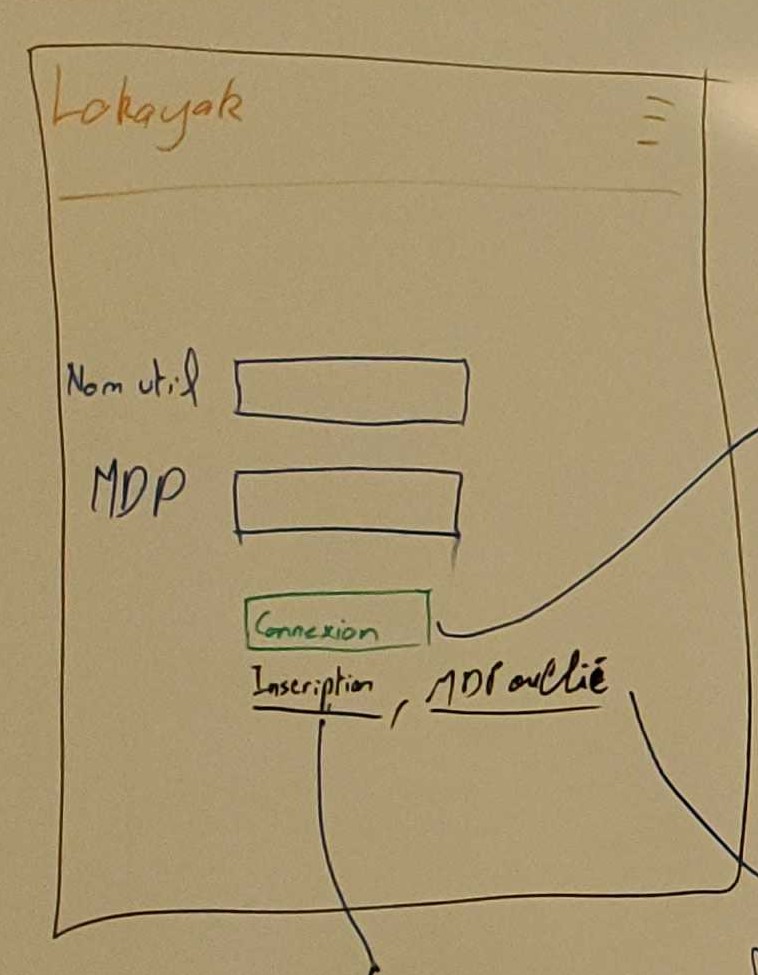 Lokayak
Nom util
MDP
Connexion
Inscription, MDP oublié